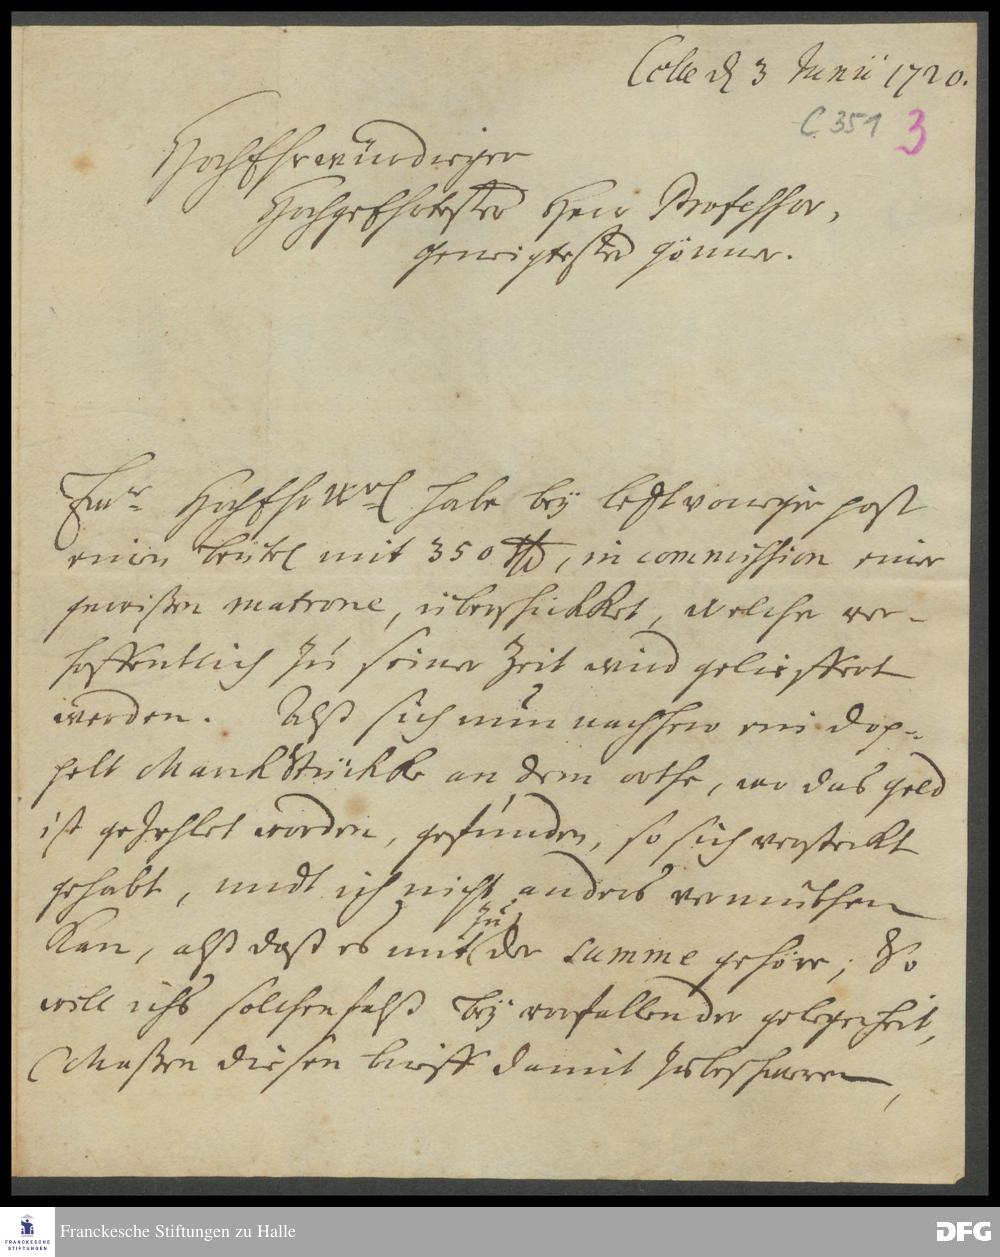 Cölle d 3 Junii 1720.
C 351 3
HochEhrwürdiger
HochgeEhrtester Herr Professor,
geneigtester gönner.
Ewr HochEhrwd habe bey letztvoriger post
einen beutel mit 350 rthl, in commission einer
gewißen matrone, überschikket, welche ver-
hoffentlich zu seiner Zeit wird geliefert
werden. Alß sich nun nachher ein dop-
pelt Marck Stückke an dem orthe, wo das geld
ist gezehlet worden, gefunden, so sich versteckt
gehabt, undt ich nicht anders vermuthen
kan, alß daß es mit zu der summe gehöre; So
will ichs solchenfalß bey vorfallender gelegenheit,
Maßen diesen brieff damit zu beschweren,
FRANCKESCHE
STIFTUNGEN
Franckesche Stiftungen zu Halle
DFG